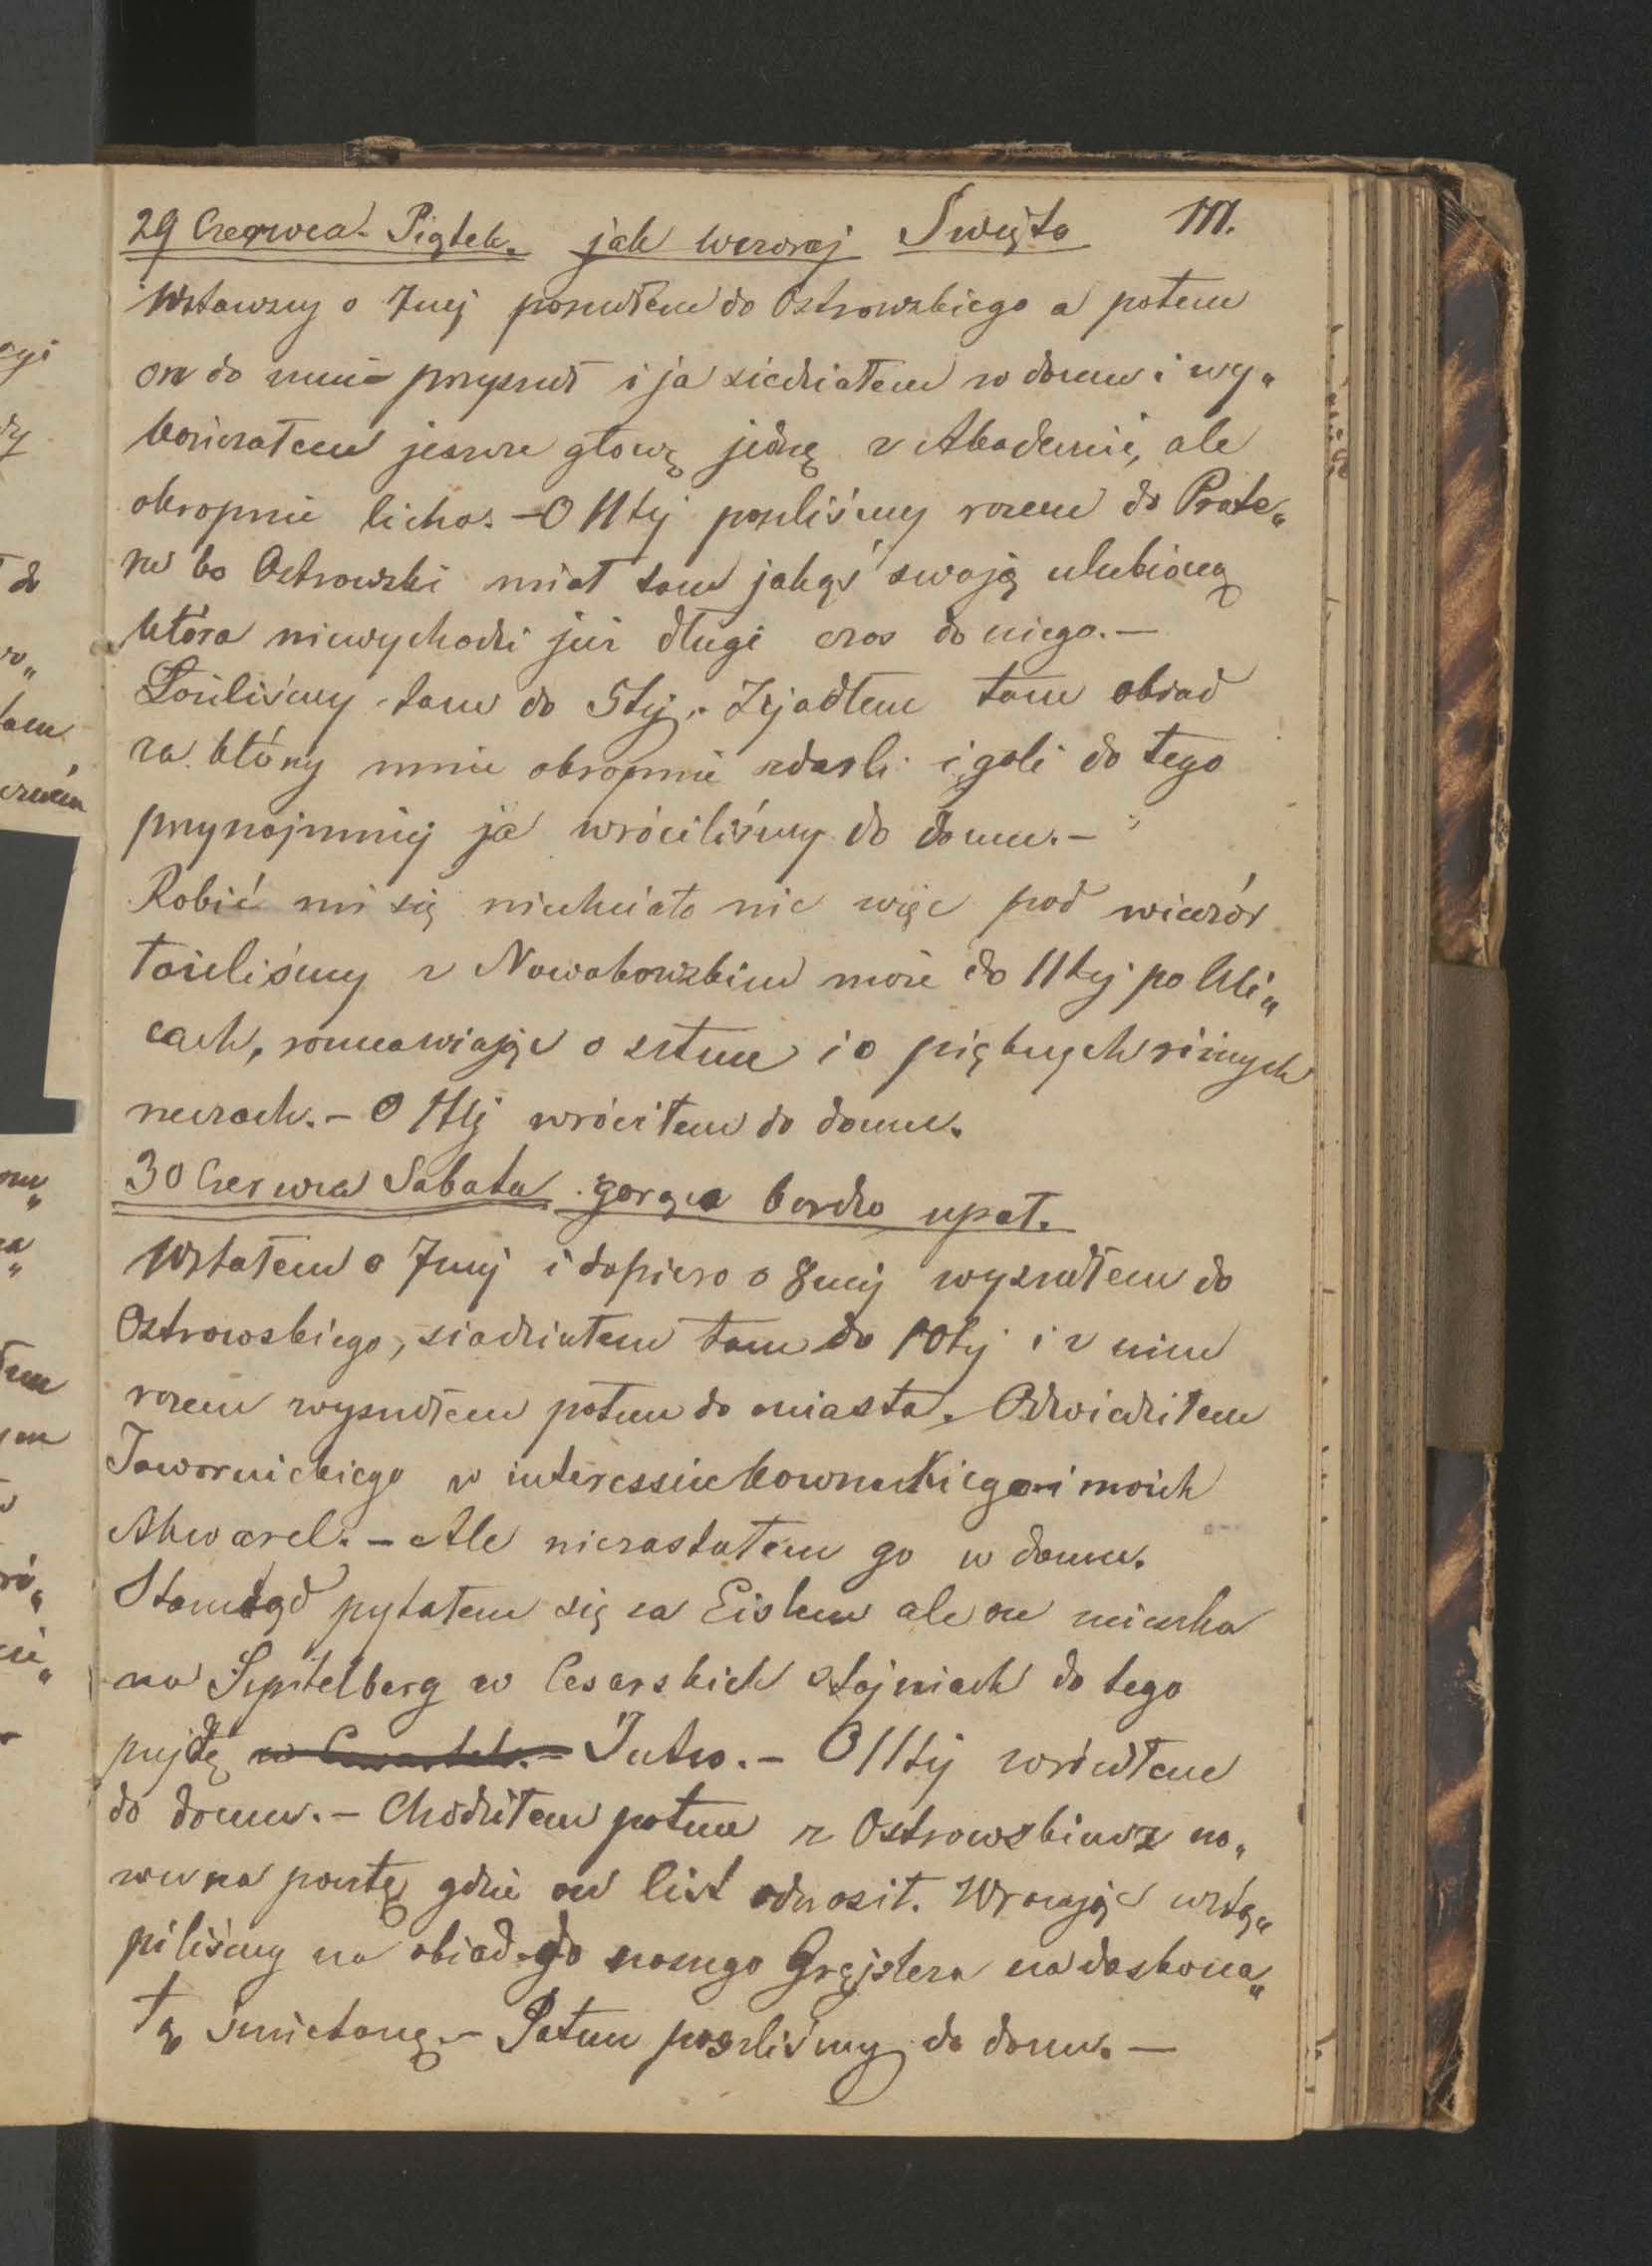 29 Czerwca. Piątek. jak wczoraj Święto 111.
Wstawszy o 7mej poszedłem do Ostrowskiego a potem
on do mnie przyszedł i ja siedziałem w domu i wy„
kończałem jeszcze głowę jednę z Akademii, ale
okropnie licho. – O 11tej poszliśmy razem do Prate„
ru bo Ostrowski miał tam jakąś swoją ulubioną
która niewychodzi już długi czas do niego. –
Łaziliśmy tam do 5tej. Zjadłem tam obiad
za który mnie okropnie zdarli i goli do tego
przynajmniej ja wróciliśmy do domu. –
Robić mi się niechciało nic więc pod wieczór
łaziliśmy z Nowakowskim może do 11tej po Uli„
cach, rozmawiając o sztuce i o pięknych różnych
rzeczach. – O 11tej wróciłem do domu.
30 Czerwca Sobota gorąca bardzo upał.
Wstałem o 7mej i dopiero o 8mej wyszedłem do
Ostrowskiego, siedziałem tam do 10tej i z nim
razem wyszedłem potem do miasta. Odwiedziłem
Jawornickiego w interessie i moich
Akwarel. – Ale niezastałem go w domu.
Stamtąd pytałem się za ale on mieszka
na Szpitelberg w Cesarskich stajniach do tego
pujdę Jutro. – O 11tej wróciłem
do domu. – Chodziłem potem z Ostrowskim z no„
wu na pocztę gdzie on list odnosił. Wracając wstą„
piliśmy na obiad do naszego Grejslera na doskona„
łą śmietanę. – Potem poszliśmy do domu. –